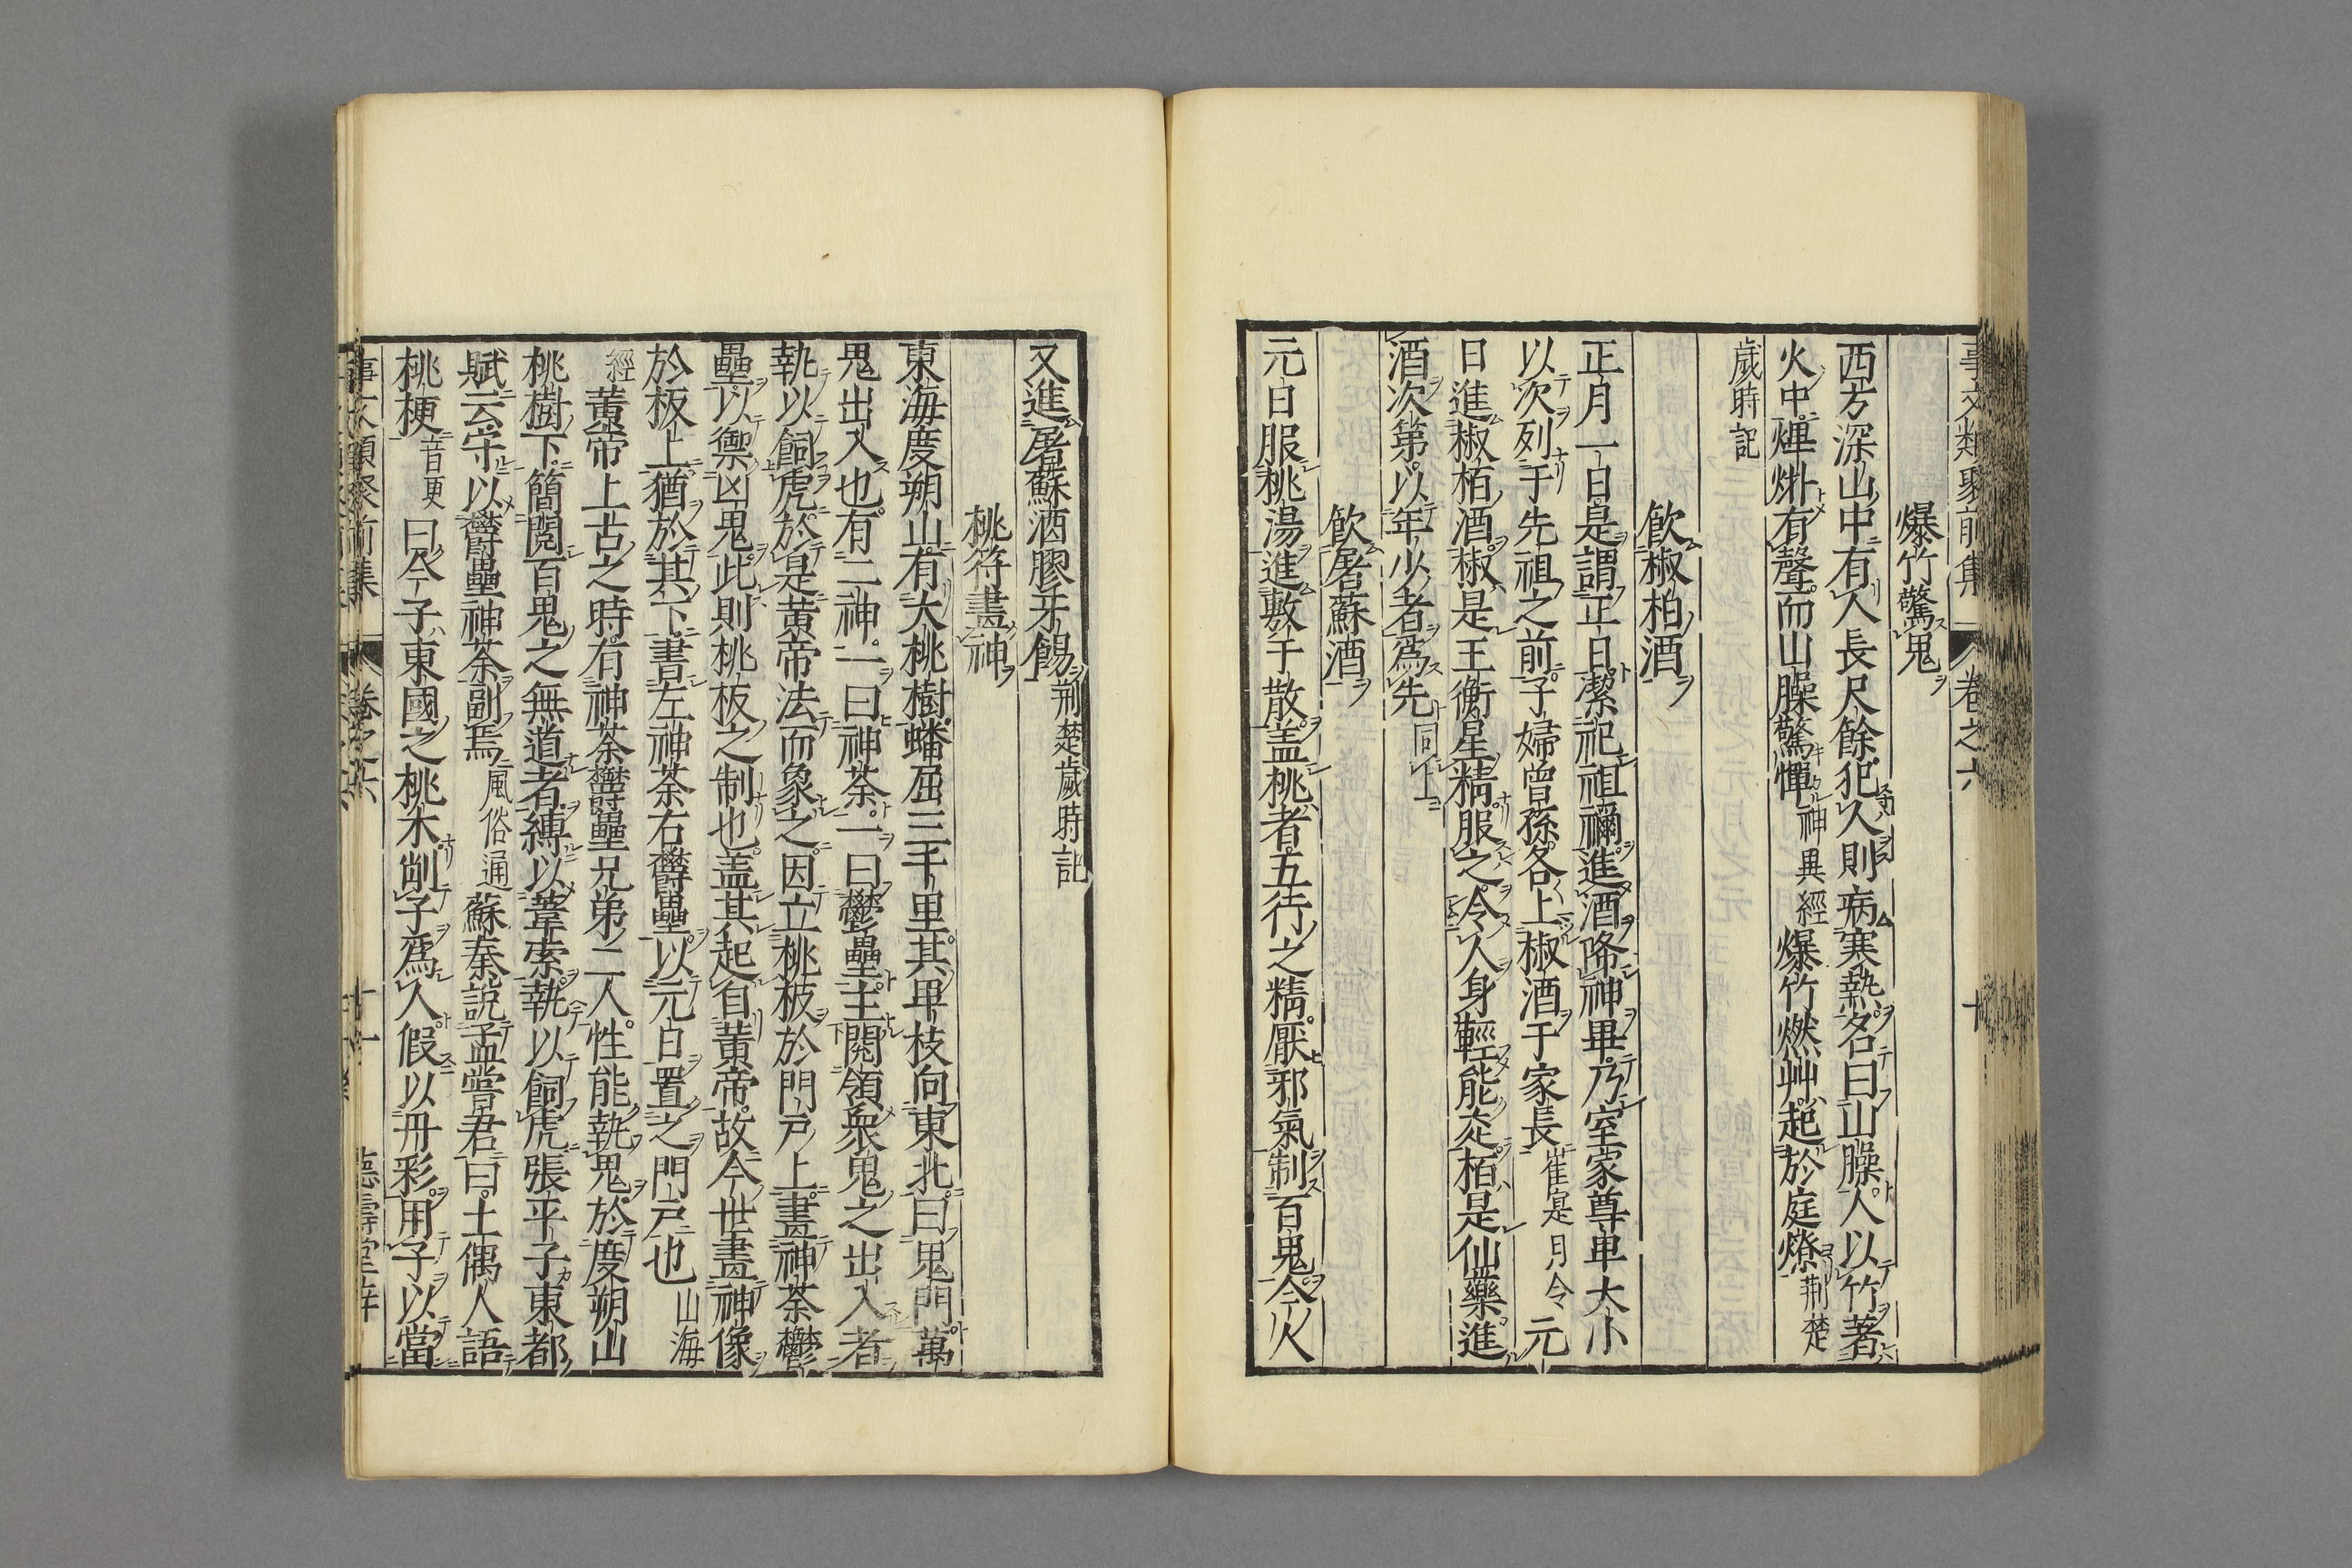 事文類聚前集 卷之六 十
爆竹驚鬼
西方深山中有人長尺餘犯人則病寒熱名曰山臊人以竹著
火中㷸㶿有聲而山臊驚憚神異經爆竹燃艸起於庭燎荆楚
歲時記
飲椒柏酒
正月一日是謂正日潔祀祖禰進酒降神畢乃室家尊卑大小
以次列于先祖之前子婦曾孫各上椒酒于家長崔寔月令元
日進椒栢酒椒是王衡星精服之令人身輕能走栢是仙藥進
酒次第以年少者爲先同上
飲屠蘇酒
元日服桃湯進敷于散盖桃者五行之精厭邪氣制百鬼今人
又進屠蘇酒膠牙餳荆楚歲時記
桃符畫神
東海度朔山有大桃樹蟠屈三千里其畢枝向東北曰鬼門萬
鬼出入也有二神一曰神荼一曰鬱壘主閱領衆鬼之出入者
執以飼虎於是黃帝法而象之因立桃板於門戶上畫神荼鬱
壘以禦凶鬼此則桃板之制也盖其起自黃帝故今世畫神像
於板上猶於其下書左神荼右欝壘以元日置之門戶也山海
經黃帝上古之時有神荼欝壘兄弟二人性能執鬼於度朔山
桃樹下簡閱百鬼之無道者縛以葦索執以飼虎張平子東都
賦云守以欝壘神荼副焉風俗通蘇秦説孟嘗君曰土偶人語
桃梗音更曰今子東國之桃木削子爲人假以丹彩用子以當
事文類聚前集 卷之六 十一